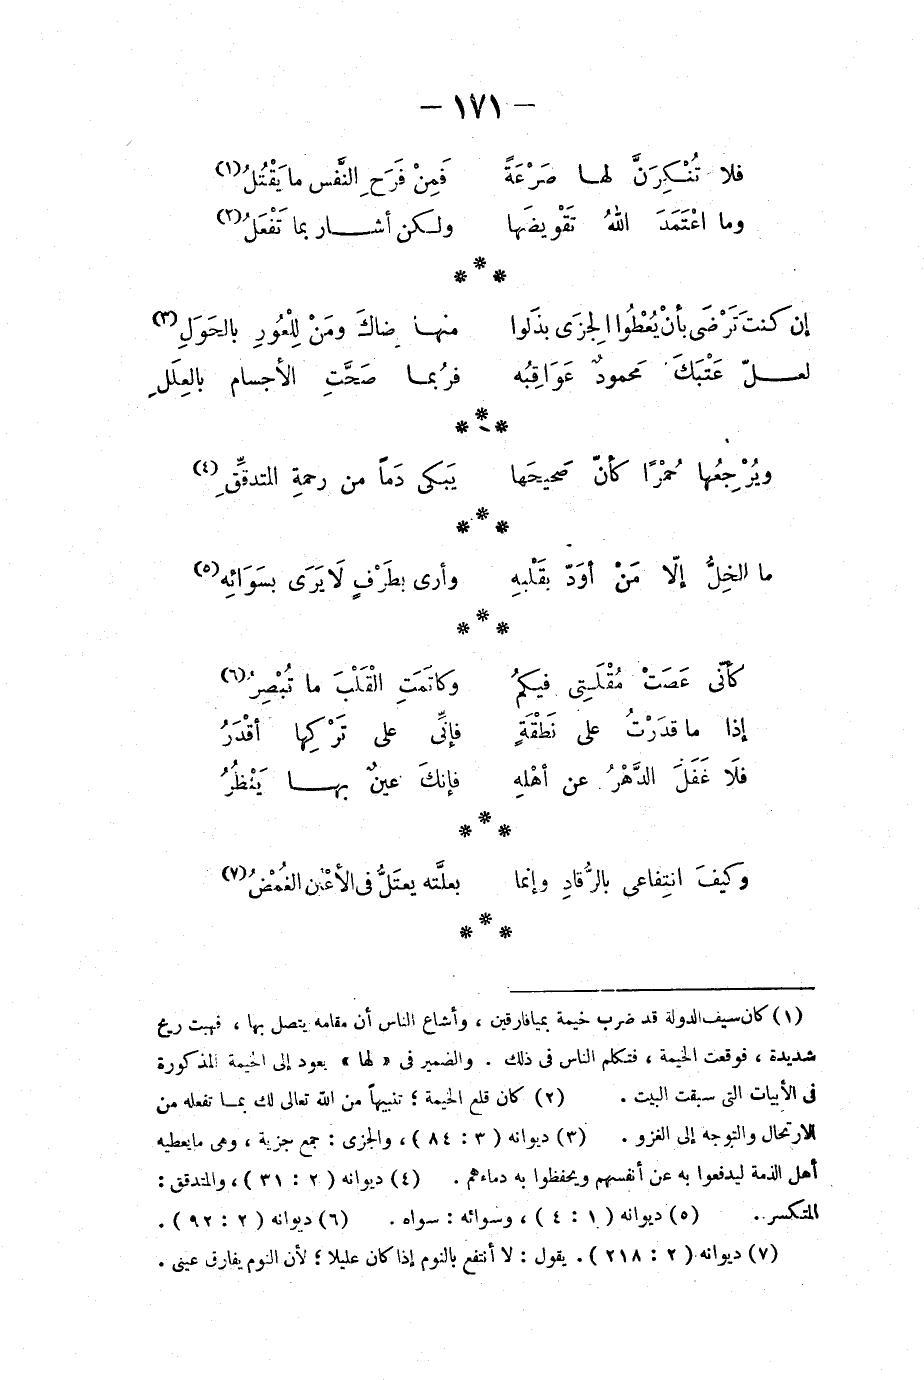 — ١٧١ —
فلا تُنْكِرَنَّ لها صَرْعَةً فَمِنْ فَرَحِ النَّفْس ما يَقْتُلُ(١)
وما اعْتَمَدَ اللهُ تَقْوِيضَها ولكن أشار بما تَفْعَلُ(٢)
* * *
إن كنتَ تَرْضَى بأنْ يُعْطُوا الجِزَى بذَلوا منها رِضاكَ ومَنْ لِلْعُورِ بالحَوَلِ(٣)
لعلّ عَتْبَكَ محمودٌ عَوَاقِبُه فرُبما صَحَّتِ الأجسام بالعِلَلِ
* * *
ويُرْجِعُها حُمْرًا كأنّ صَحيحَها يَبكى دَماً من رحمةِ المتدقِّقِ(٤)
* * *
ما الخِلُّ إلّا مَنْ أوَدّ بقَلْبهِ وأرى بطَرْفٍ لَا يَرَى بسَوَائِه(٥)
* * *
كأنّى عَصَتْ مُقْلَتِى فيكمُ وكاتَمَتِ القَلْبَ ما تُبْصِرُ(٦)
إذا ما قدَرْتُ على نَطْقَةٍ فإنِّى على تَرْكِها أقْدَرُ
فلَا غَفَلَ الدَّهْرُ عن أهْلهِ فإنكَ عينٌ بها يَنْظُرُ
* * *
وكيفَ انتِفاعى بالرُّقادِ وإنما بعلَّته يعتَلُّ فى الأعْيُن الغُمْضُ(٧)
* * *
(١) كان سيف الدولة قد ضرب خيمة بميافارقين ، وأشاع الناس أن مقامه يتصل بها ، فهبت ريح
شديدة ، فوقعت الخيمة ، فتكلم الناس فى ذلك . والضمير فى « لها » يعود إلى الخيمة المذكورة
فى الأبيات التى سبقت البيت . (٢) كان قلع الخيمة ؛ تنبيهاً من الله تعالى لك بما تفعله من
الارتحال والتوجه إلى الغزو . (٣) ديوانه ( ٣ : ٨٤ ) ، والجزى : جمع جزية ، وهى مايعطيه
أهل الذمة ليدفعوا به عن أنفسهم ويحفظوا به دماءهم . (٤) ديوانه ( ٢ : ٣١ ) ، والمتدقق :
المتكسر . (٥) ديوانه ( ١ : ٤ ) ، وسوائه : سواه . (٦) ديوانه ( ٢ : ٩٢ ) .
(٧) ديوانه ( ٢ : ٢١٨ ) . يقول : لا أنتفع بالنوم إذا كان عليلا ؛ لأن النوم يفارق عينى .